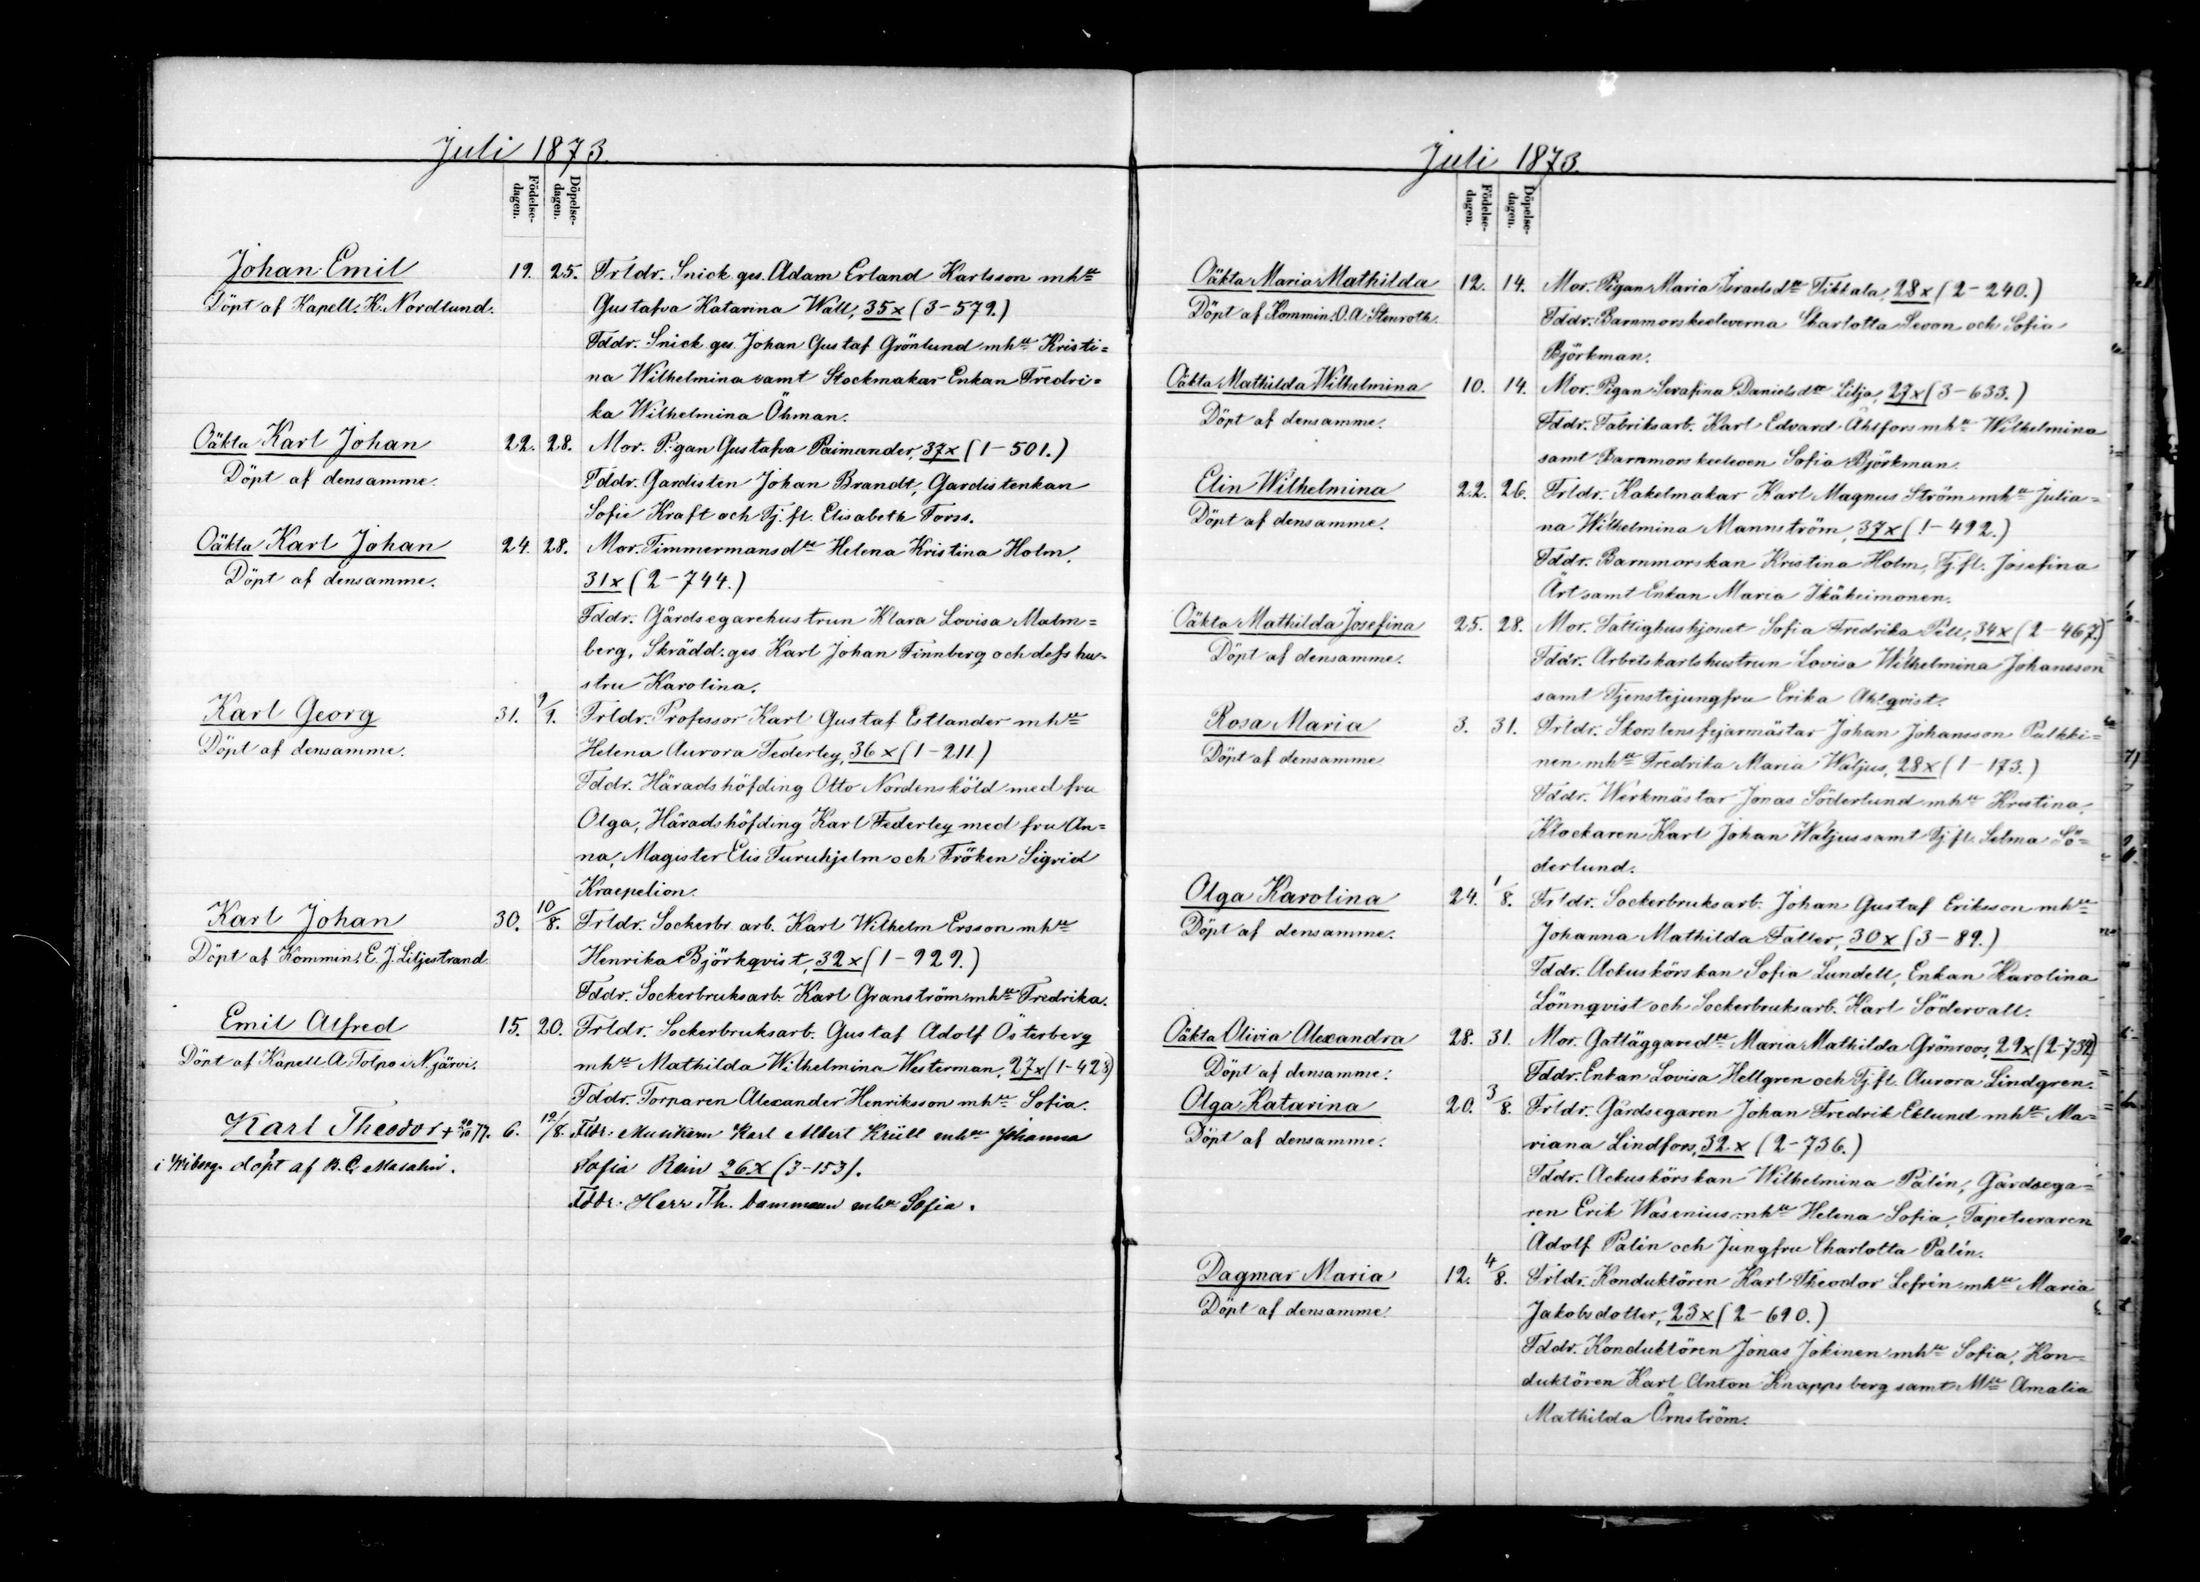 Juli 1873.
Födelse-dagen.
Döpelse-dagen.
Johan Emil
Döpt af Kapell. K. Nordlund.
19. 25. Frldr. Snick. ges. Adam Erland Karlsson mhu
Gustafva Katarina Wall, 35 x (3-579.)
Fddr. Snick. ges. Johan Gustaf Grönlund mhu Kristi=
na Wilhelmina samt Stockmakar Enkan Fredri=
ka Wilhelmina Öhman.
Oäkta Karl Johan
Döpt af densamme.
22. 28. Mor. Pigan Gustafva Paimander, 37x (1-501.)
Fddr. Gardisten Johan Brandt, Gardistenkan
Sofie Kraft och Tj. fl. Elisabeth Forss.
Oäkta Karl Johan
Döpt af densamme.
24. 28. Mor. Timmermansdtr Helena Kristina Holm,
31x (2-744.)
Fddr. Gårdsegarehustrun Klara Lovisa Malm=
berg, Skrädd. ges. Karl Johan Finnberg och dess hu-
stru Karolina.
Karl Georg
Döpt af densamme.
31. 9/9. Frldr. Professor Karl Gustaf Estlander mhu
Helena Aurora Federley, 36 x (1-211.)
Fddr. Häradshöfding Otto Nordensköld med fru
Olga, Häradshöfding Karl Federley med fru An=
na, Magister Elis Furuhjelm och Fröken Sigrid
Kraepelion.
Karl Johan
Döpt af Kommin. E. J. Liljestrand
30. 10/8. Frldr. Sockerbr. arb. Karl Wilhelm Ersson mhu
Henrika Björkqvist, 32 x (1-929.)
Fddr. Sockerbruksarb. Karl Granström mhu Fredrika.
Emil Alfred
Döpt af Kapell A. Tolpo i N. järvi.
15. 20. Frldr. Sockerbruksarb. Gustaf Adolf Österberg
mhu Mathilda Wilhelmina Westerman, 27x (1-428)
Fddr. Torparen Alexander Henriksson mhu Sofia.
Karl Theodor + 20/10 77.
i Wiborg. döpt af B. C. Masalin.
6. 12/8. Fldr. Musikern Karl Albert Krüll mhu Johanna
Sofia Rein 26x (3-153).
Fddr. Herr Th. Dammann mhu Sofia.
Juli 1873.
Födelse-dagen.
Döpelse-dagen.
Oäkta Maria Mathilda
Döpt af Kommin. O. A. Stenroth.
12. 14. Mor. Pigan Maria Israelsdtr Tiklala, 28x (2-240.)
Fddr. Barnmorskeeleverna Charlotta Sevon och Sofia
Björkman.
Oäkta Mathilda Wilhelmina
Döpt af densamme.
10. 14. Mor. Pigan Serafina Danielsdtr Lilja, 27x (3-633.)
Fddr. Fabriksarb. Karl Edvard Åhlfors mhu Wilhelmina
samt Barnmorskeeleven Sofia Björkman.
Elin Wilhelmina
Döpt af densamme.
22. 26. Frldr. Kakelmakar Karl Magnus Ström mhu Julia=
na Wilhelmina Mannström, 37x (1-492.)
Fddr. Barnmorskan Kristina Holm, Tj. fl. Josefina
Ärt samt Enkan Maria Ikäheimonen.
Oäkta Mathilda Josefina
Döpt af densamme.
25. 28. Mor. Fattighushjonet Sofia Fredrika Pell, 34x (2-467.)
Fddr. Arbetskarlshustrun Lovisa Wilhelmina Johansson
samt Tjenstejungfru Erika Ahlqvist.
Rosa Maria
Döpt af densamme
3. 31. Frldr. Skorstensfejarmästar Johan Johansson Pulkki=
nen mhu Fredrika Maria Waljus, 28x (1-173.)
Fddr. Werkmästar Jonas Söderlund mhu Kristina,
Klockaren Karl Johan Waljus samt Tj. fl. Selma Sö=
derlund.
Olga Karolina
Döpt af densamme.
24. 1/8. Frldr. Sockerbruksarb. Johan Gustaf Eriksson mhu
Johanna Mathilda Faller, 30x (3-89.)
Fddr. Ackuskörskan Sofia Lundell, Enkan Karolina
Lönnqvist och Sockerbruksarb. Karl Södervall.
Oäkta Olivia Alexandra
Döpt af densamme.
28. 31. Mor. Gatläggaredtr Maria Mathilda Grönroos, 29x (2-732)
Fddr. Enkan Lovisa Hellgren och Tj. fl. Aurora Lindgren.
Olga Katarina
Döpt af densamme.
20. 3/8. Frldr. Gårdsegaren Johan Fredrik Eklund mhu Ma=
riana Lindfors, 32 x (2-736.)
Fddr. Ackuskörskan Wilhelmina Palin, Gårdsega=
ren Erik Wasenius mhu Helena Sofia, Tapetseraren
Adolf Palin och Jungfru Charlotta Palin.
Dagmar Maria
Döpt af densamme.
12. 4/8. Frldr. Konduktören Karl Theodor Lefrén mhu Maria
Jakobsdotter, 23x (2-690.)
Fddr. Konduktören Jonas Jokinen mhu Sofia, Kon=
duktören Karl Anton Knappsberg samt Mll Amalia
Mathilda Örnström.